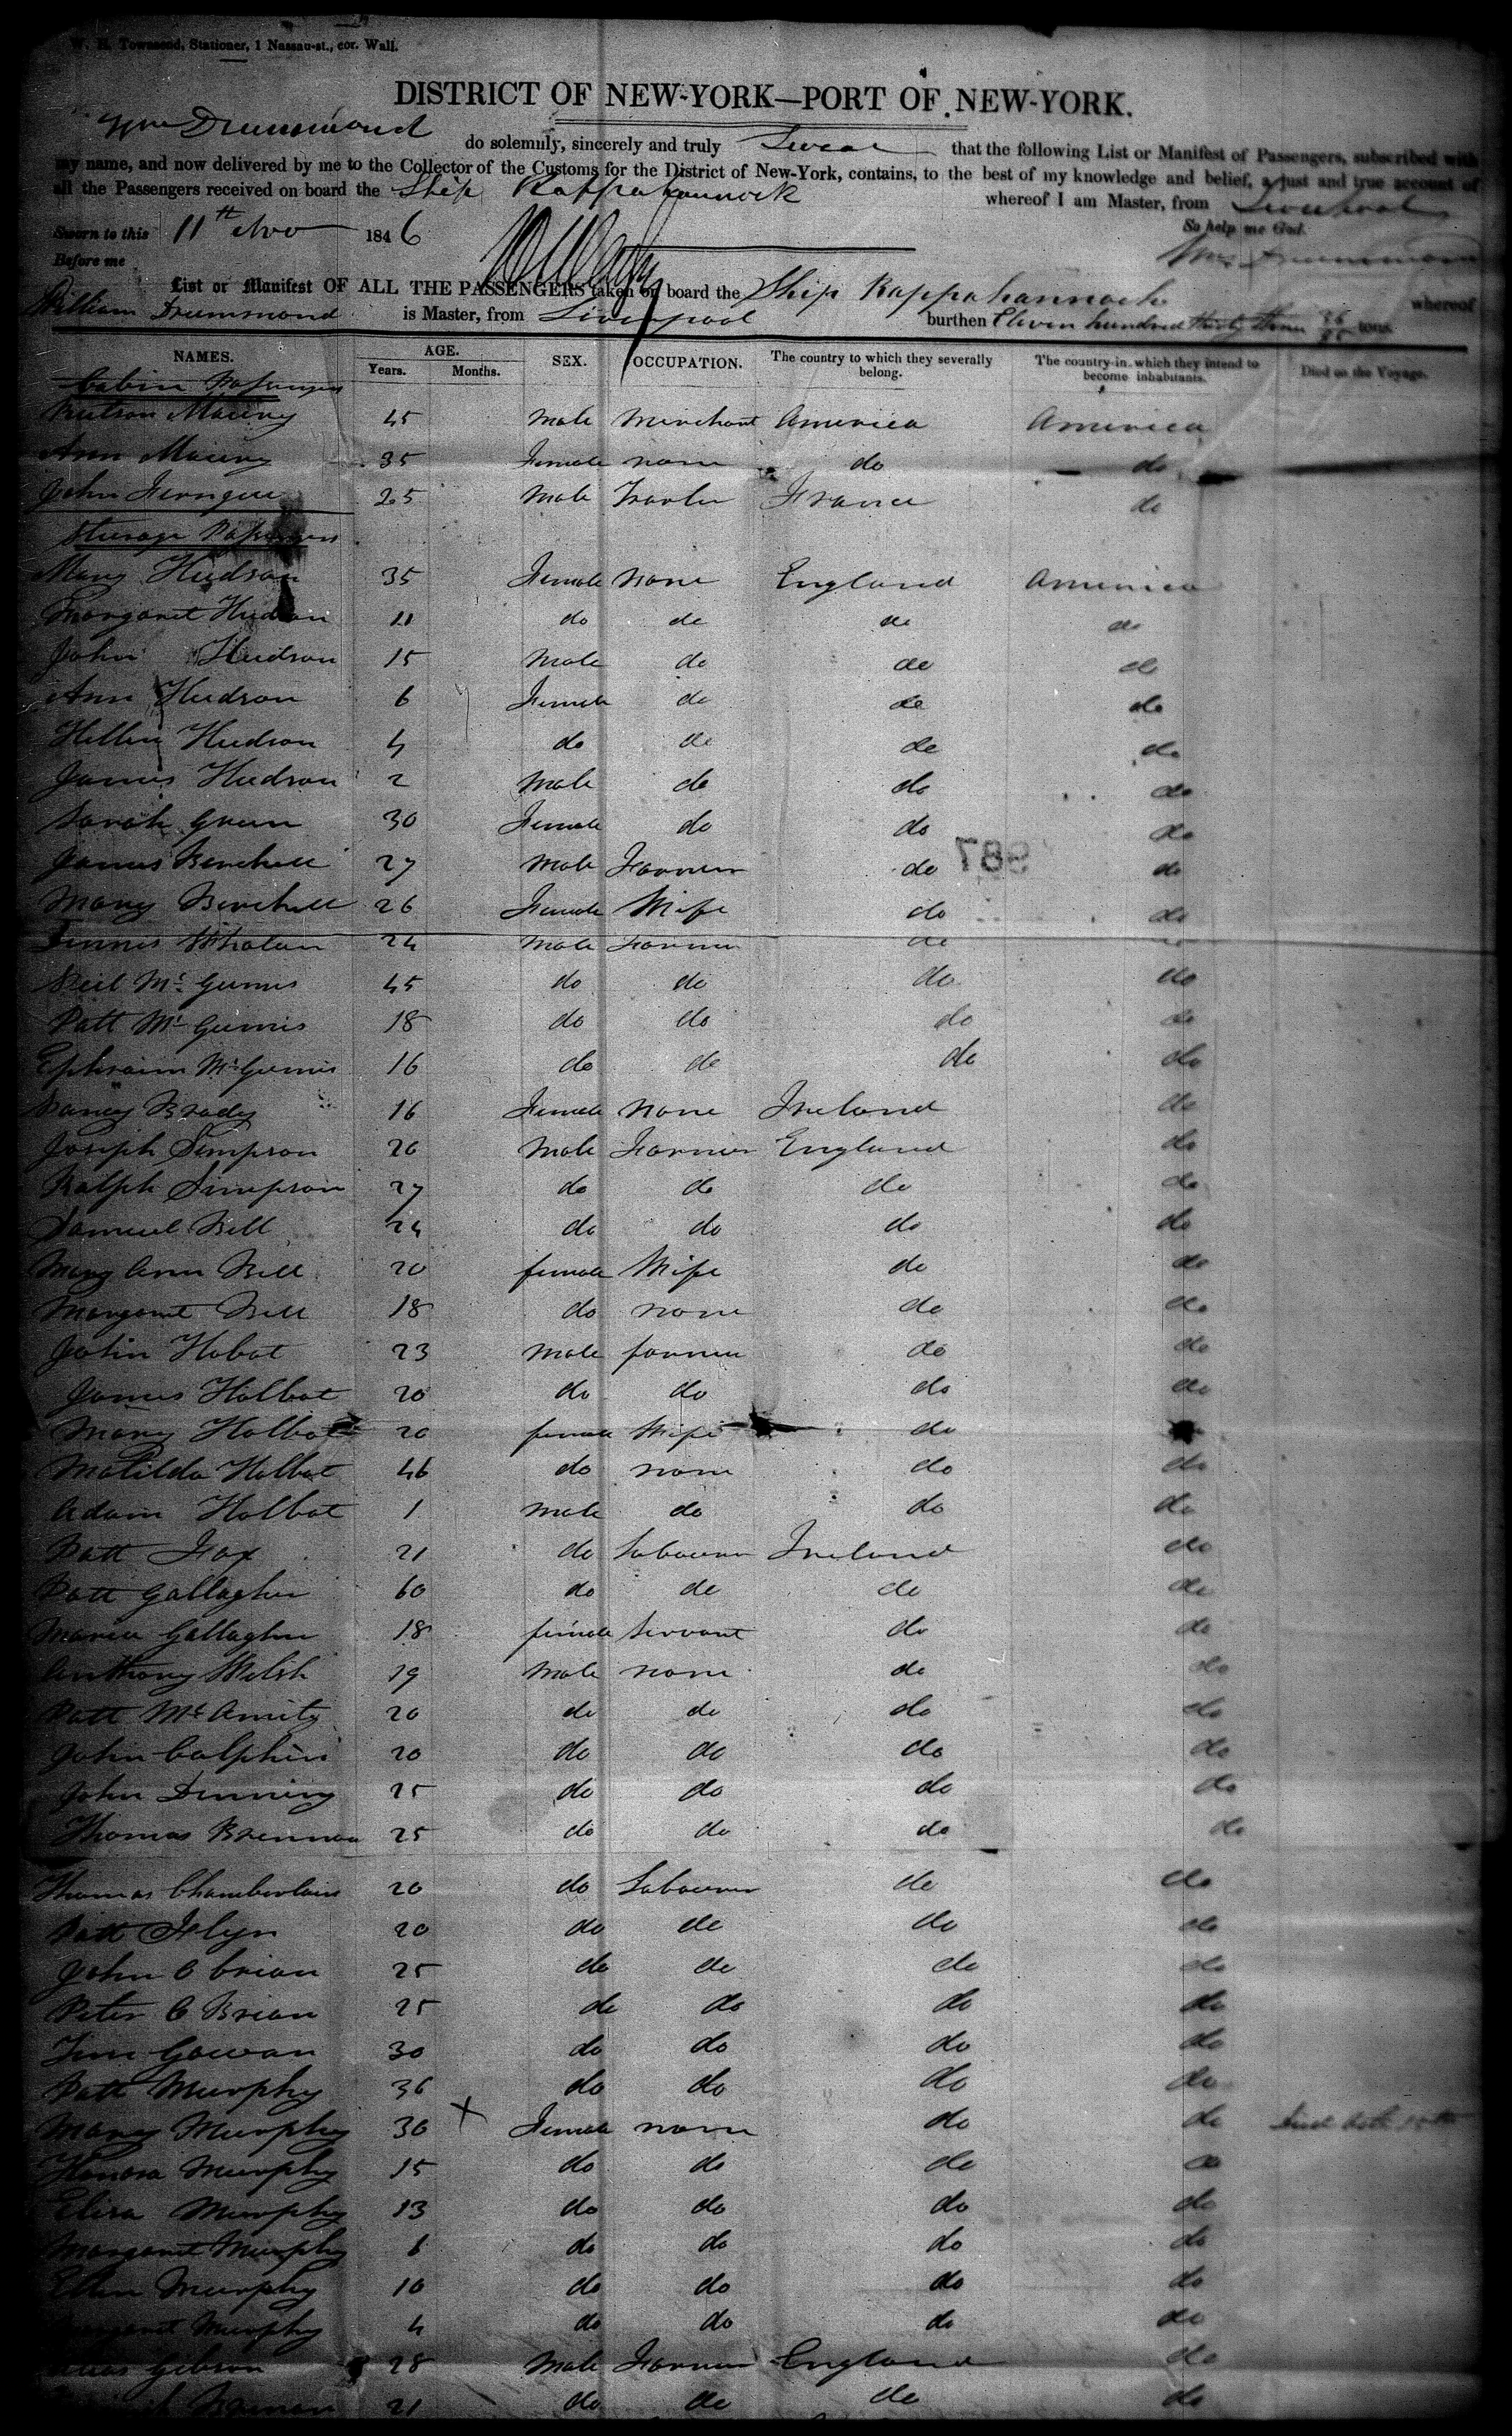 W. H. Townsend, Stationer, 1 Nassau-st., cor. Wall.
DISTRICT OF NEW-YORK—PORT OF NEW-YORK.
Wm Drummond do solemnly, sincerely and truly Swear that the following List or Manifest of Passengers, subscribed with
my name, and now delivered by me to the Collector of the Customs for the District of New-York, contains, to the best of my knowledge and belief, a just and true account of
all the Passengers received on board the Ship Rappahannock whereof I am Master, from Liverpool
So help me God.
Sworn to this 11th Nov 1846
Wm Drummond
Before me
List or Manifest OF ALL THE PASSENGERS taken on board the Ship Rappahannock whereof
William Drummond is Master, from Liverpool burthen Eleven hundred thirty three tons.
NAMES. AGE. SEX. OCCUPATION. The country to which they severally belong. The country in which they intend to become inhabitants. Died on the Voyage.
Years. Months.
Cabin Passengers
45 Male Merchant America America
Ann 35 Female none do do
John 25 Male France do
Steerage Passengers
Mary Hudson 35 Female None England America
Margaret Hudson 11 do do do do
John Hudson 15 Male do do do
Ann Hudson 6 Female do do do
Hellen Hudson 4 do do do do
James Hudson 2 Male do do do
Sarah Green 30 Female do do do
James Birchell 27 Male Farmer do do
987
Mary Birchell 26 Female Wife do do
Dennis Whalan 24 Male Farmer do do
Neil Mc Ginnis 45 do do do do
Patt Mc Ginnis 18 do do do do
Ephraim Mc Ginnis 16 do do do do
Nancy Brady 16 Female None Ireland do
Joseph Simpson 26 Male Farmer England do
Ralph Simpson 27 do do do do
Samuel Bell 24 do do do do
Mary Ann Bell 20 female Wife do do
Margaret Bell 18 do none do do
John Hobat 23 Male farmer do do
James Holbat 20 do do do do
Mary Holbat 20 female Wife do
Matilda Holbat 46 do none do do
Adam Holbat 1 Male do do do
Patt Fox 21 do Labourer Ireland do
Patt Gallagher 60 do do do do
Maria Gallagher 18 female Servant do do
Anthony Welsh 19 Male none do do
Patt 20 do do do do
John Calphin 20 do do do do
John Dunning 25 do do do do
Thomas Brennan 25 do do do do
Thomas Chamberlain 20 do Labourer do do
Patt Flyn 20 do do do do
John O brian 25 do do do do
Peter O Brian 25 do do do do
Gowan 30 do do do do
Patt Murphy 36 do do do do
Mary Murphy 30 x Female none do do
Honora Murphy 15 do do do do
Eliza Murphy 13 do do do do
Margaret Murphy 6 do do do do
Ellen Murphy 10 do do do do
Murphy 4 do do do do
Gibson 28 Male Farmer England do
21 do do do do